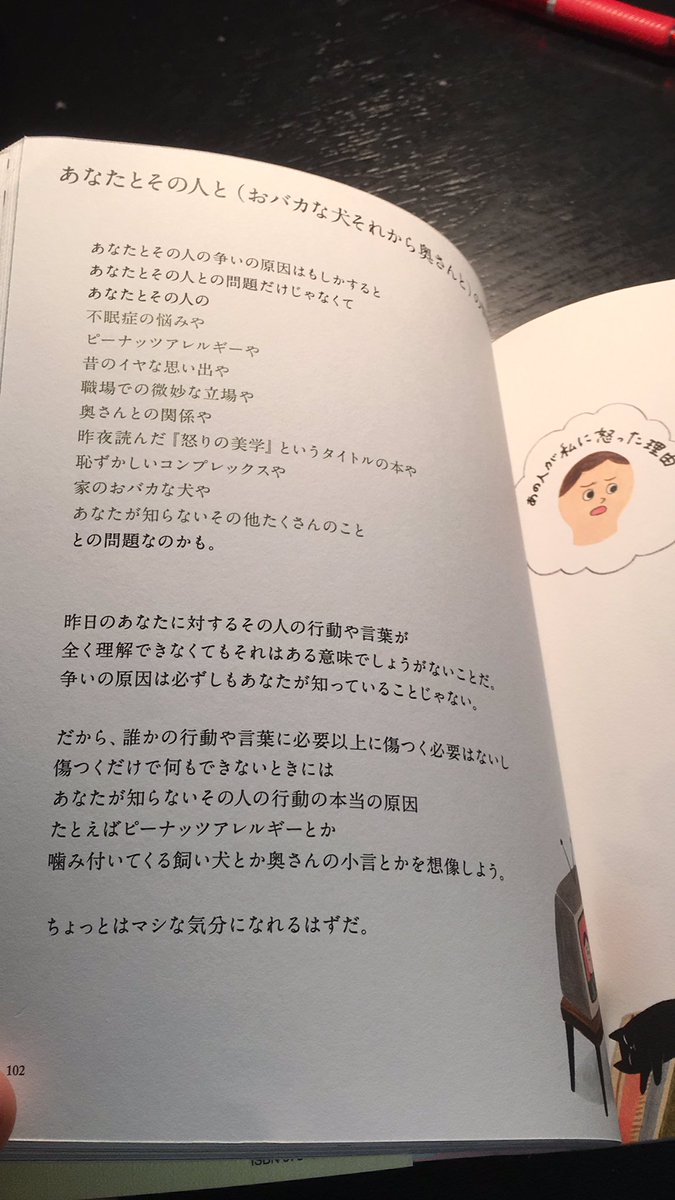 あなたとその人と（おバカな犬それから奥さんと）の
あなたとその人の争いの原因はもしかすると
あなたとその人との問題だけじゃなくて
あなたとその人の
不眠症の悩みや
ピーナッツアレルギーや
昔のイヤな思い出や
職場での微妙な立場や
奥さんとの関係や
昨夜読んだ『怒りの美学』というタイトルの本や
恥ずかしいコンプレックスや
家のおバカな犬や
あなたが知らないその他たくさんのこと
との問題なのかも。
昨日のあなたに対するその人の行動や言葉が
全く理解できなくてもそれはある意味でしょうがないことだ。
争いの原因は必ずしもあなたが知っていることじゃない。
だから、誰かの行動や言葉に必要以上に傷つく必要はないし
傷つくだけで何もできないときには
あなたが知らないその人の行動の本当の原因
たとえばピーナッツアレルギーとか
噛み付いてくる飼い犬とか奥さんの小言とかを想像しよう。
ちょっとはマシな気分になれるはずだ。
102
あの人が私に怒った理由